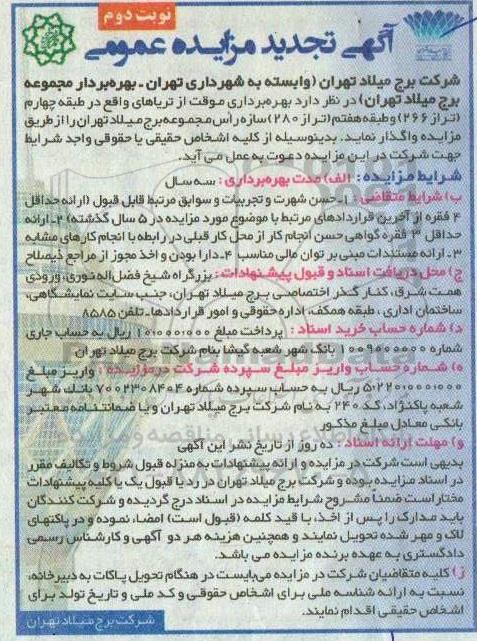 نوبت دوم
آگهی تجدید مزایده عمومی
شرکت برج میلاد تهران (وابسته به شهرداری تهران - بهره‌بردار مجموعه
برج میلاد تهران) در نظر دارد بهره‌برداری موقت از تریاهای واقع در طبقه چهارم
(تراز ۲۶۶) و طبقه هفتم (تراز ۲۸۰) سازه رأس مجموعه برج میلاد تهران را از طریق
مزایده واگذار نماید. بدینوسیله از کلیه اشخاص حقیقی یا حقوقی واجد شرایط
جهت شرکت در این مزایده دعوت به عمل می آید.
شرایط مزایده: الف) مدت بهره‌برداری: سه سال
ب) شرایط متقاضی: ۱- حسن شهرت و تجربیات و سوابق مرتبط قابل قبول (ارائه حداقل
۴ فقره از آخرین قراردادهای مرتبط با موضوع مورد مزایده در ۵ سال گذشته) ۲- ارائه
حداقل ۳ فقره گواهی حسن انجام کار از محل کار قبلی در رابطه با انجام کارهای مشابه
۳- ارائه مستندات مبنی بر توان مالی مناسب ۴- دارا بودن و اخذ مجوز از مراجع ذیصلاح
ج) محل دریافت اسناد و قبول پیشنهادات: بزرگراه شیخ فضل اله نوری، ورودی
همت شرق، کنار گذر اختصاصی برج میلاد تهران، جنب سایت نمایشگاهی،
ساختمان اداری، طبقه همکف، اداره حقوقی و امور قراردادها - تلفن ۸۵۸۵
د) شماره حساب خرید اسناد: پرداخت مبلغ ۱/۰۰۰/۰۰۰ ریال به حساب جاری
شماره بانک شهر شعبه گیشا بنام شرکت برج میلاد تهران
ه) شماره حساب واریز مبلغ سپرده شرکت در مزایده: واریز مبلغ
ریال به حساب سپرده شماره ۷۰۰۲۳۰۸۴۰۴ بانک شهر
شعبه پاکنژاد، کد ۲۴۰ به نام شرکت برج میلاد تهران و یا ضمانتنامه معتبر
بانکی معادل مبلغ مذکور
و) مهلت ارائه اسناد: ده روز از تاریخ نشر این آگهی
بدیهی است شرکت در مزایده و ارائه پیشنهادات به منزله قبول شروط و تکالیف مقرر
در اسناد مزایده بوده و شرکت برج میلاد تهران در رد یا قبول یک یا کلیه پیشنهادات
مختار است ضمناً مشروح شرایط مزایده در اسناد درج گردیده و شرکت کنندگان
باید مدارک را پس از اخذ، با قید کلمه (قبول است) امضاء نموده و در پاکتهای
لاک و مهر شده تحویل نمایند و همچنین هزینه هر دو آگهی و کارشناس رسمی
دادگستری به عهده برنده مزایده می باشد.
ز) کلیه متقاضیان شرکت در مزایده می‌بایست در هنگام تحویل پاکات به دبیرخانه،
نسبت به ارائه شناسه ملی برای اشخاص حقوقی و کد ملی و تاریخ تولد برای
اشخاص حقیقی اقدام نمایند.
شرکت برج میلاد تهران